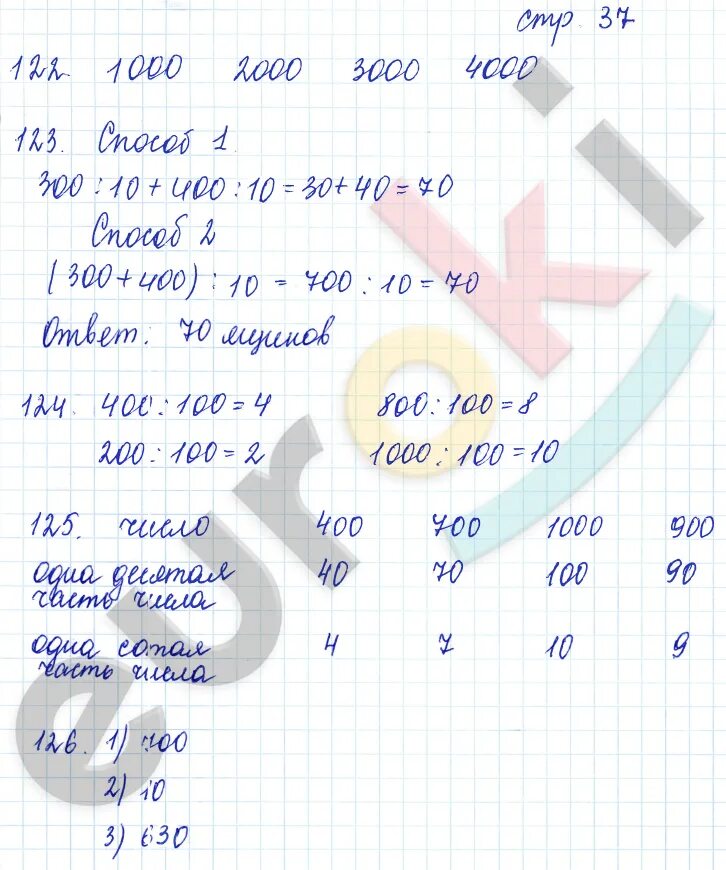 стр. 37
122. 1000 2000 3000 4000
123. Способ 1.
300 : 10 + 400 : 10 = 30 + 40 = 70
Способ 2
(300 + 400) : 10 = 700 : 10 = 70
Ответ: 70 ящиков
124. 400 : 100 = 4 800 : 100 = 8
200 : 100 = 2 1000 : 100 = 10
125. число 400 700 1000 900
одна десятая 40 70 100 90
часть числа
одна сотая 4 7 10 9
часть числа
126. 1) 700
2) 10
3) 630
euroki